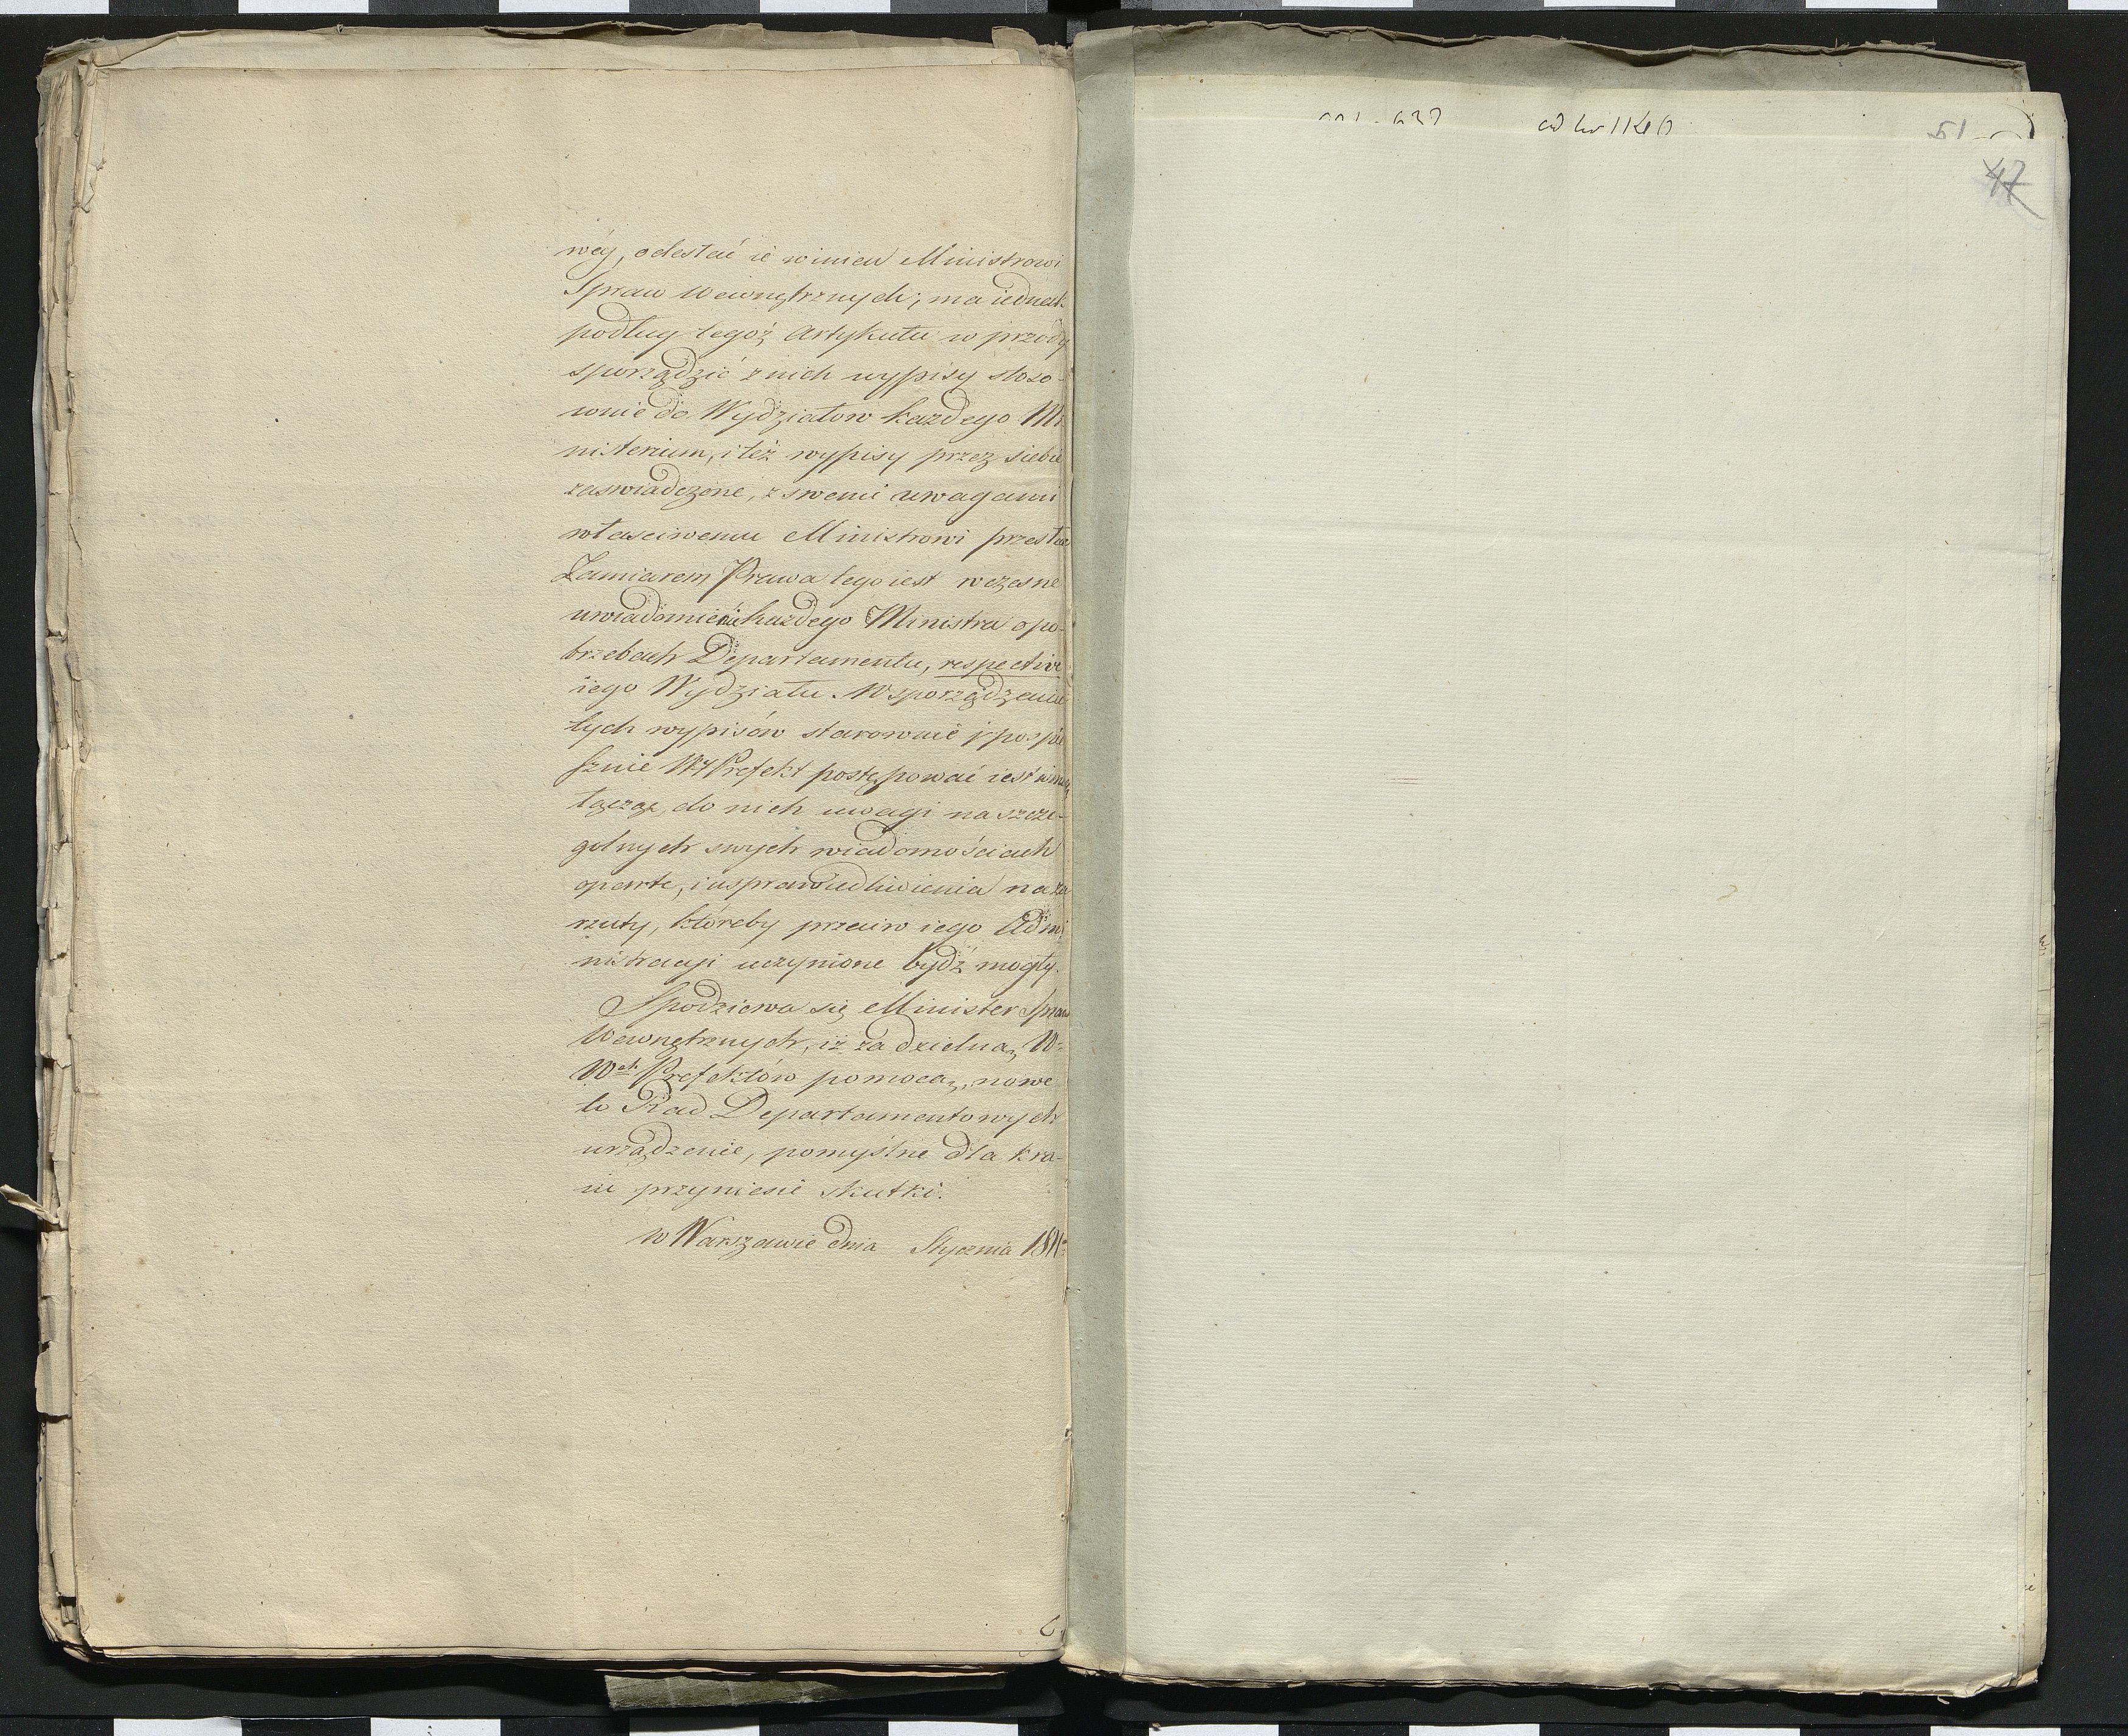 wéy, odesłać ie winien Ministrowi
Spraw Wewnętrznych; ma iednak
podług tegoż Artykułu w przódy
sporządzić z nich wypisy stoso-
wnie do Wydziałow każdego Mi
nisterium, i też wypisy przez siebie
zaswiadczone, z swemi uwagami
własciwemu Ministrowi przesłać
Zamiarem Prawa tego iest wczesne
uwiadomienie każdego Ministra o po-
trzebach Departamentu, respective
iego Wydziału. W sporządzeniu
tych wypisów starownie i pospie
sznie W Prefekt postępować iest winien
łącząc do nich uwagi na szcze-
golnych swych wiadomościach
oparte, i usprawiedliwienia na za
rzuty, któreby przeciw iego Admi
nistracyi uczynione bydź mogły.
Spodziewa się Minister Spraw
Wewnętrznych, iż za dzielną W
Wch Prefektów pomocą, nowe
to Rad Departamentowych
urządzenie, pomyślne dla kra-
iu przyniesie skutki.
w Warszawie dnia Stycznia 1811
51
47